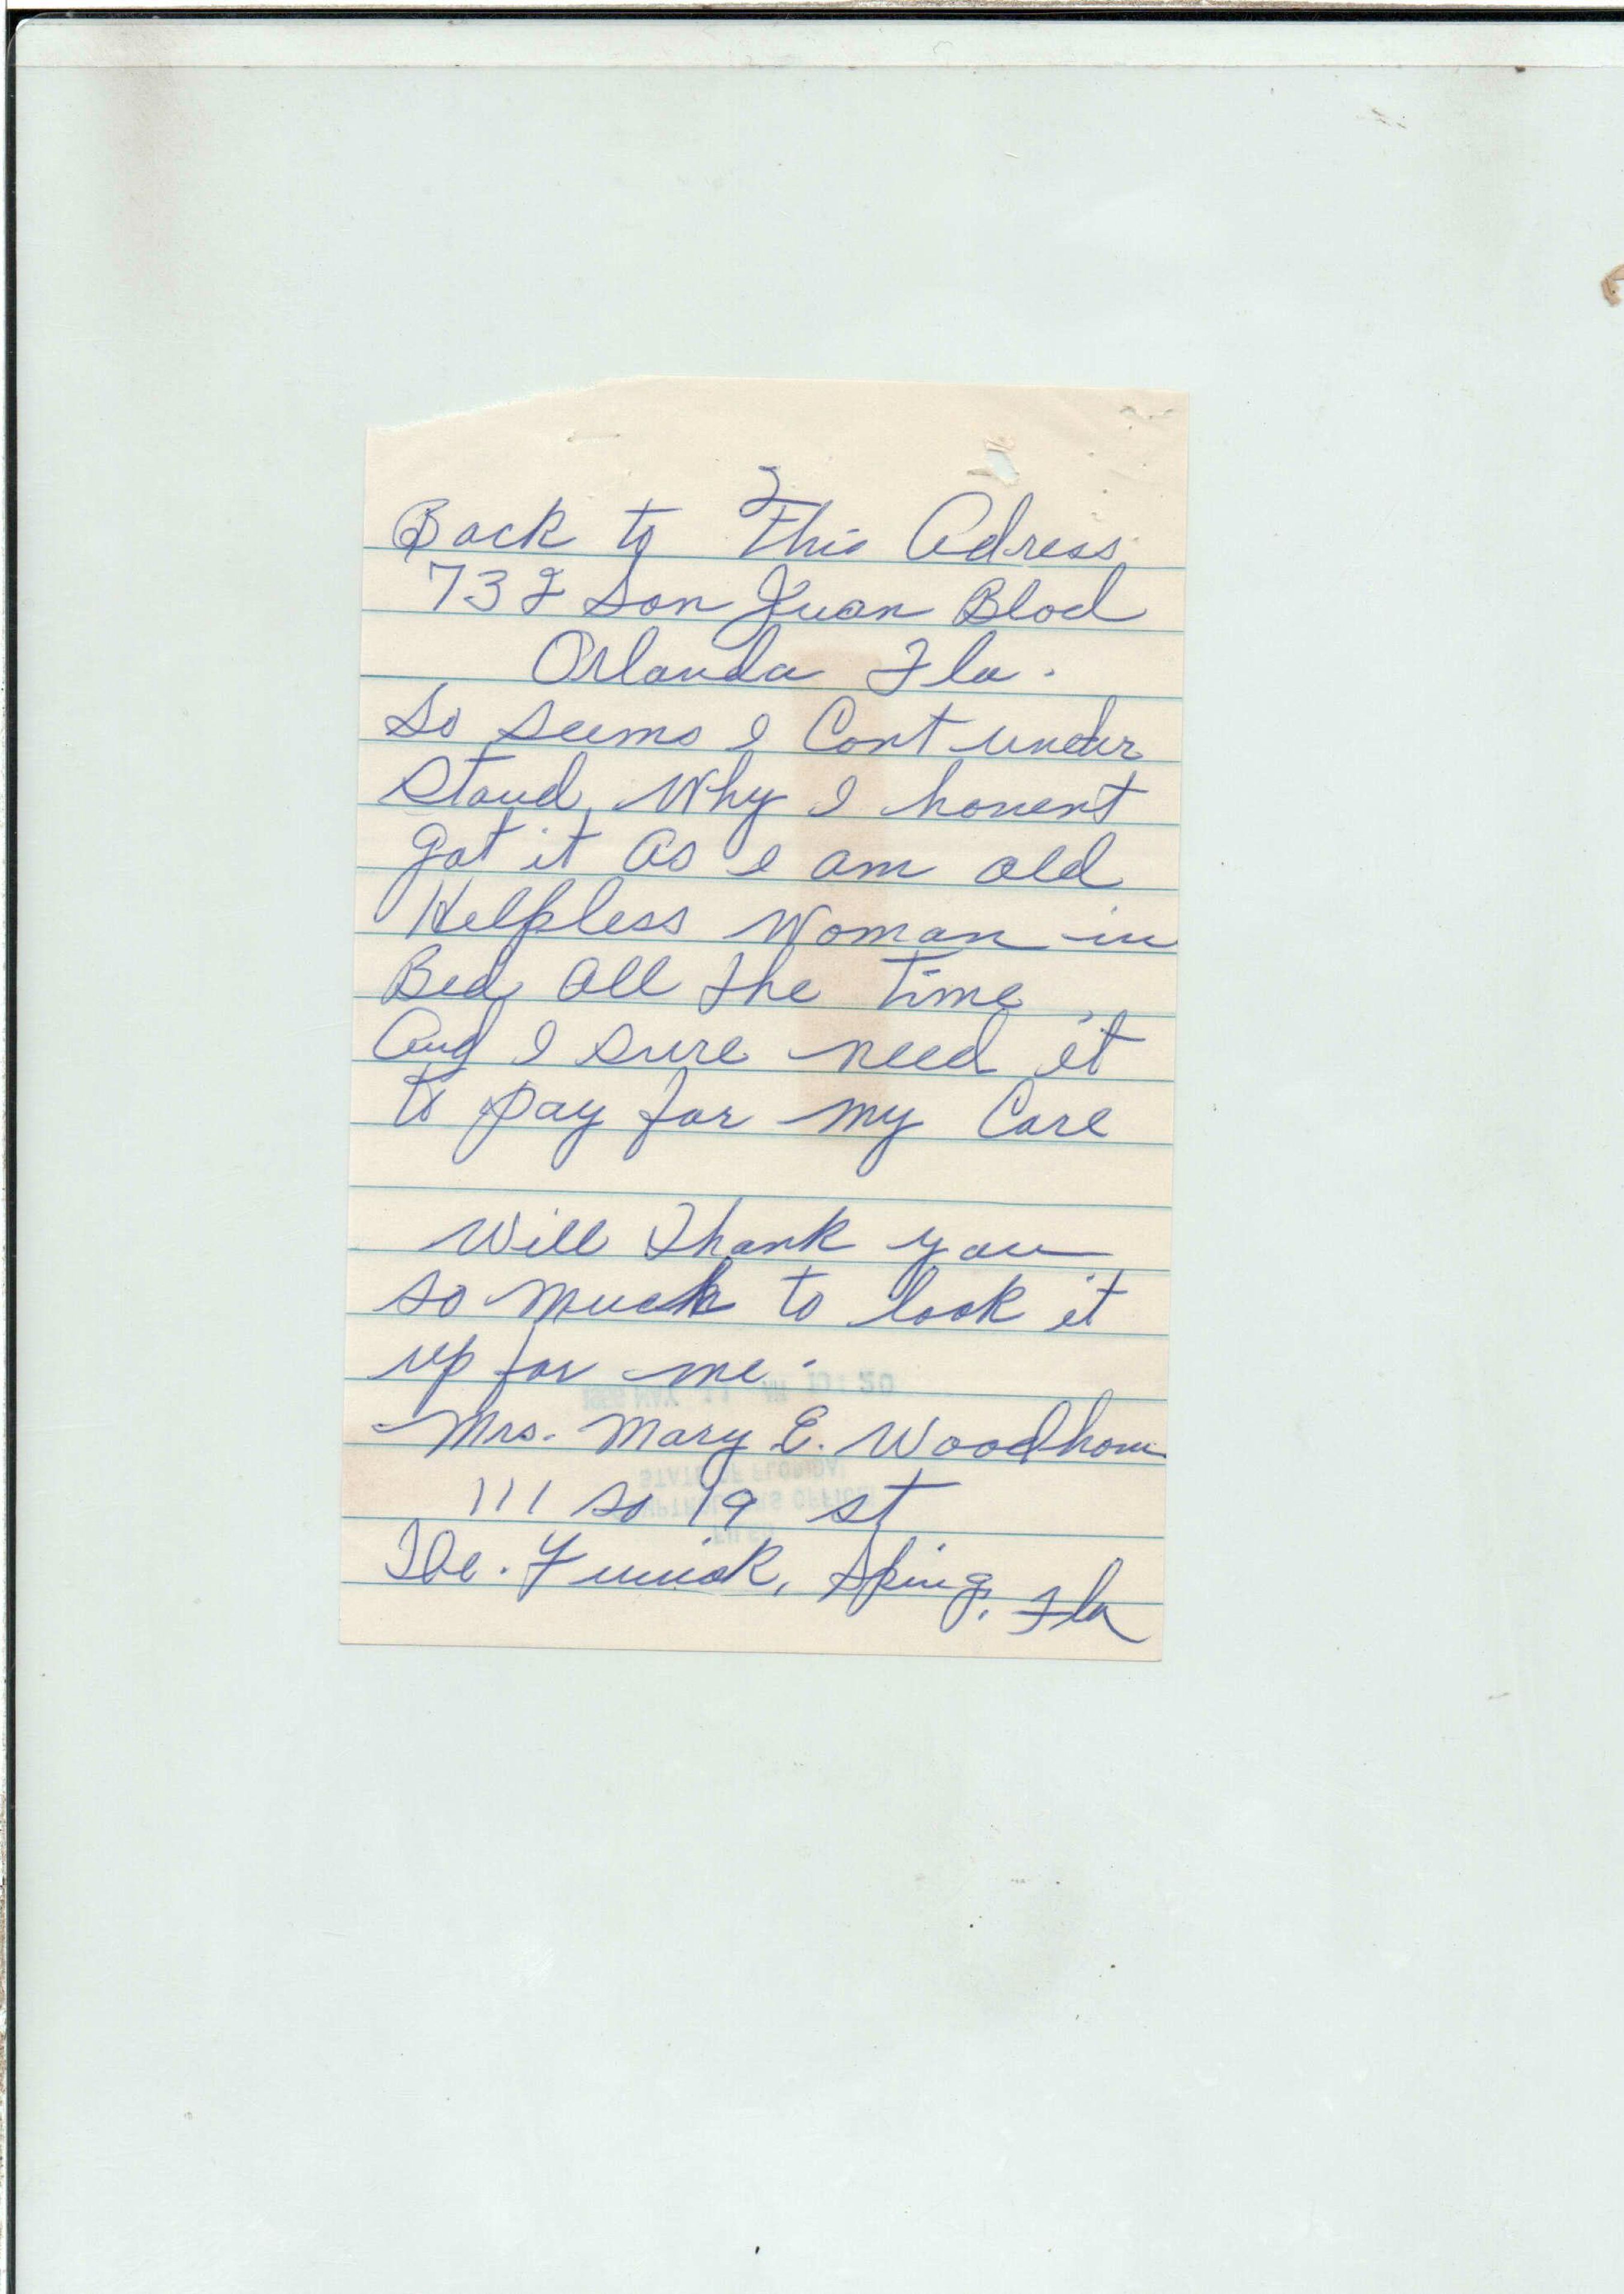 2
Back to This Adress
732 San Juan Blod
Orlanda Fla.
So seems I Cant under
stand Why I havent
got it as I am old
Helpless Woman in
Bed all the Time
And I sure need it
to pay for my Care
Will Thank you
so much to look it
up for me.
Mrs. Mary E. Woodham
111 so 19 st
De. Funiak, Sping, Fla